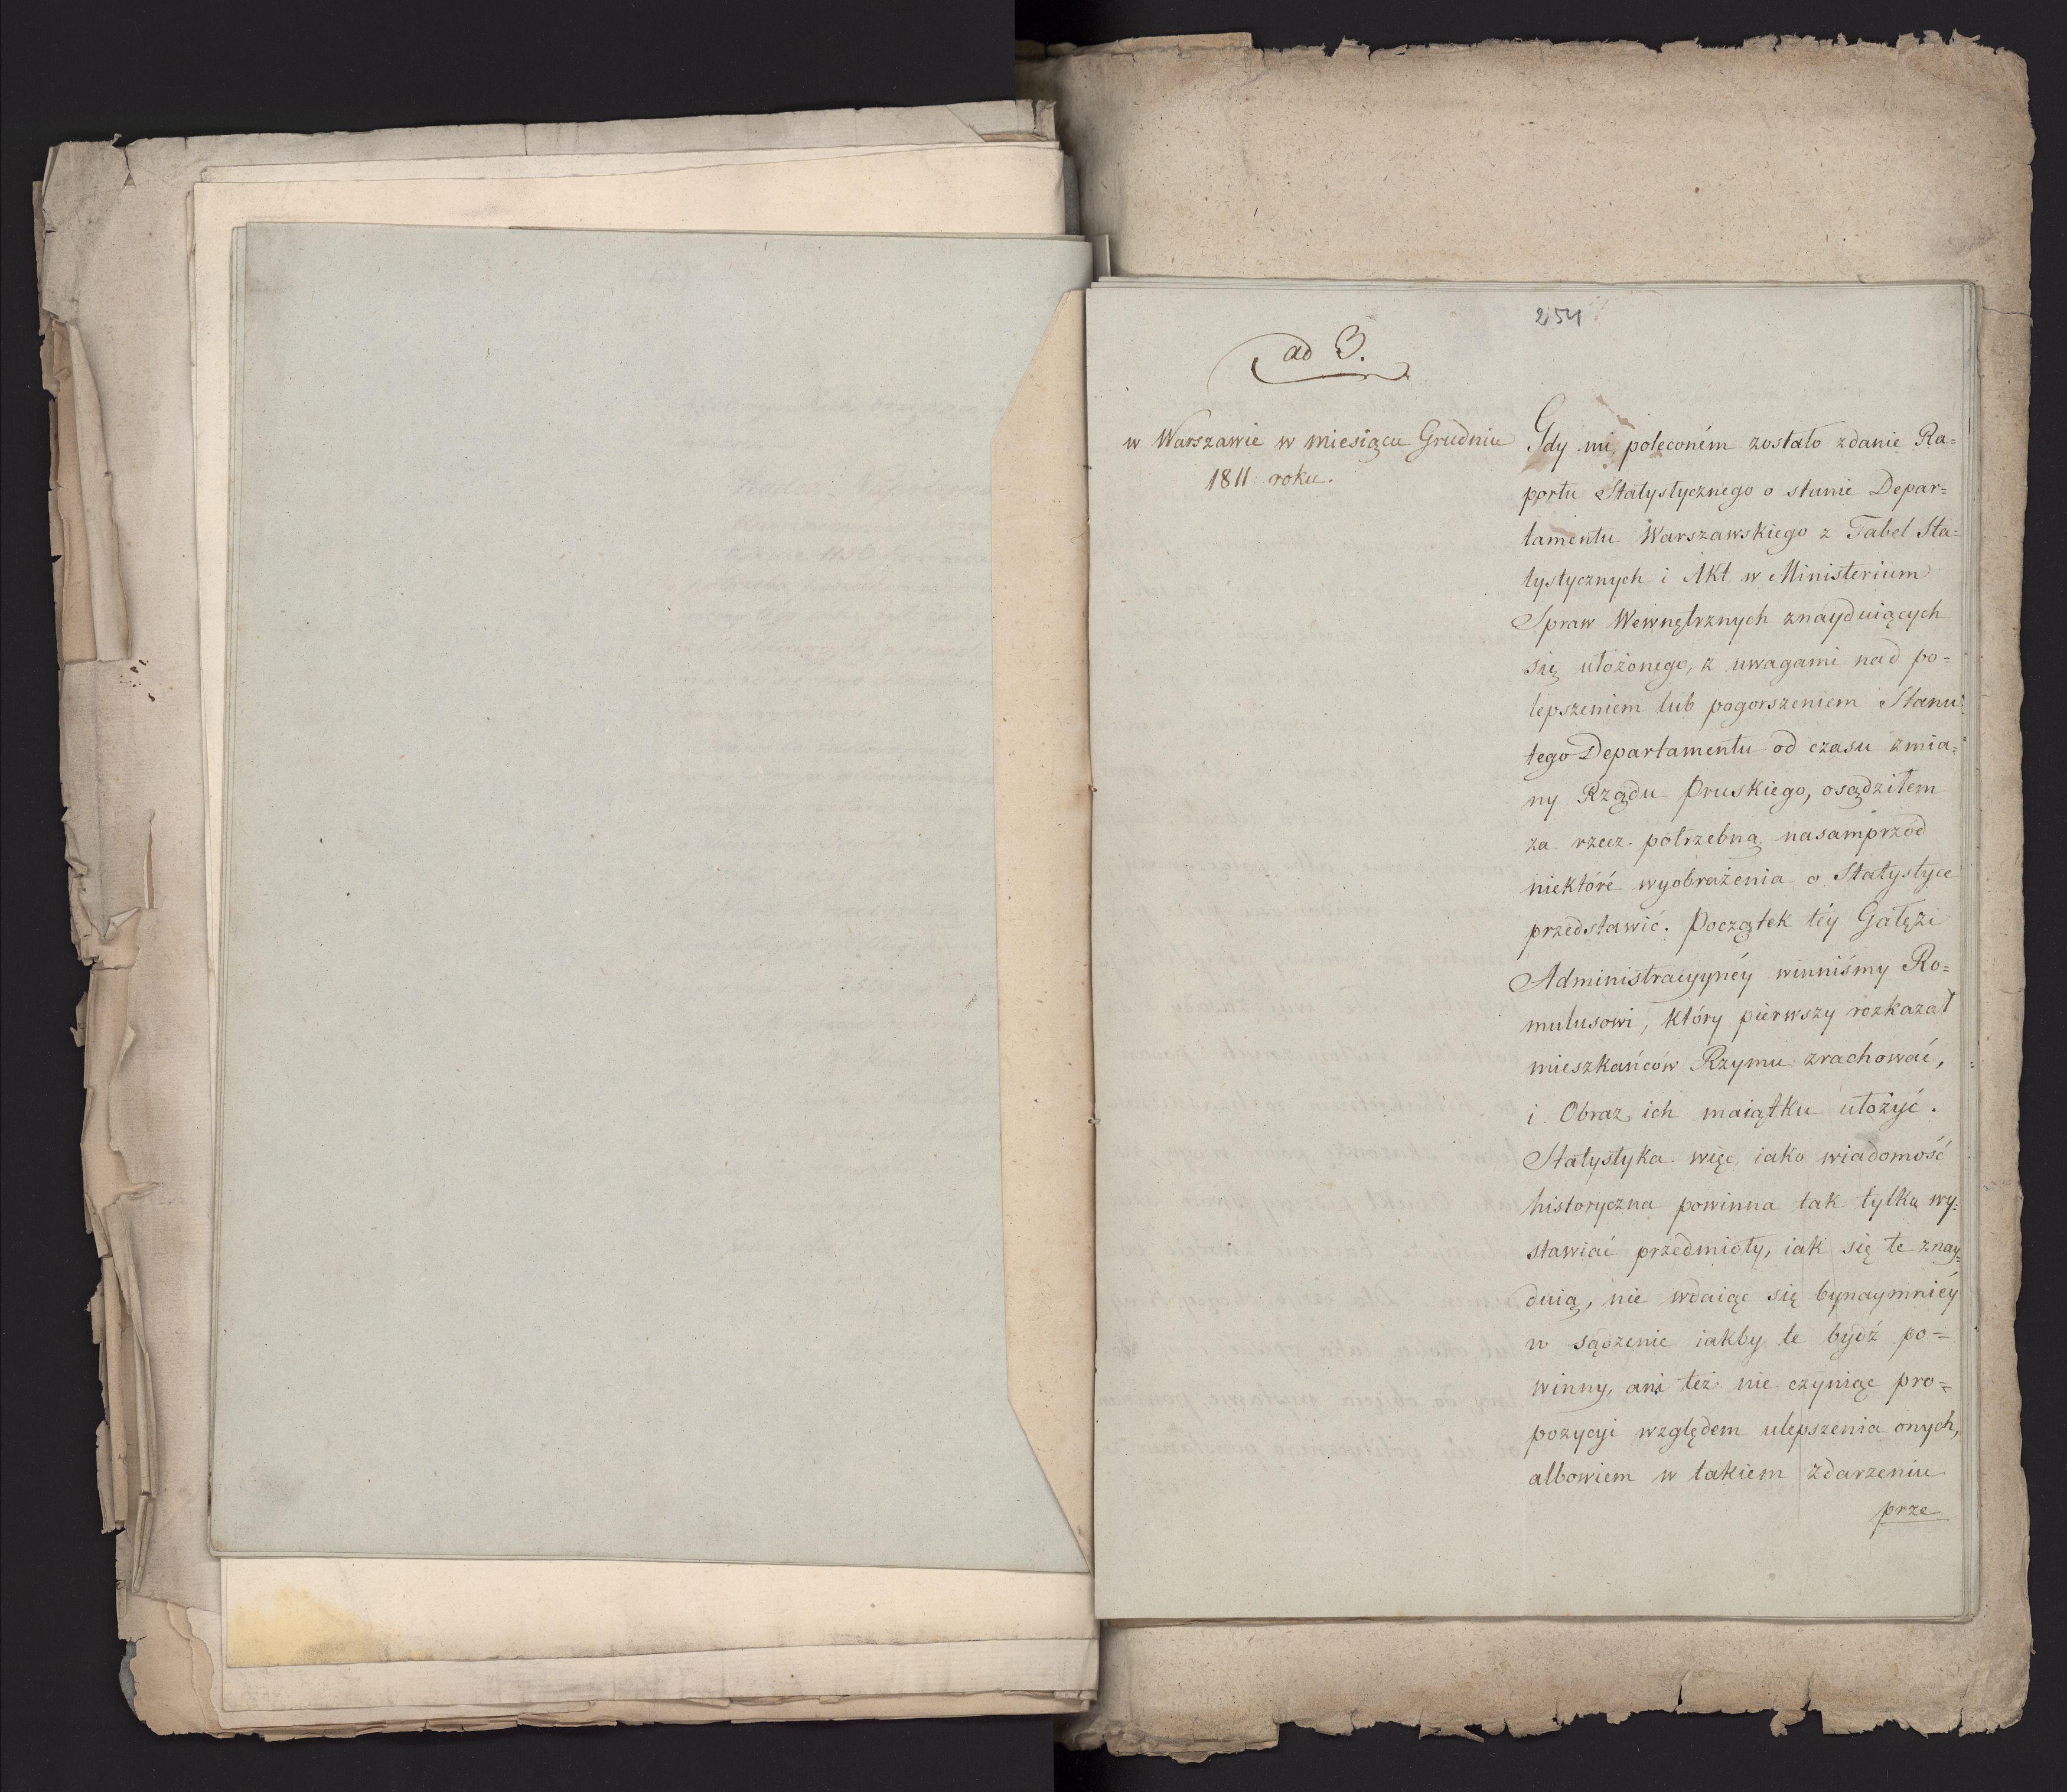 254
ad 3.
w Warszawie w miesiącu Grudniu
1811 roku.
Gdy mi poleconém zostało zdanie Ra=
portu Statystycznego o stanie Depar=
tamentu Warszawskiego z Tabel Sta=
tystycznych i Akt w Ministerium
Spraw Wewnętrznych znayduiących
się ułożonego, z uwagami nad po=
lepszeniem lub pogorszeniem Stanu
tego Departamentu od czasu zmia=
ny Rządu Pruskiego, osądziłem
za rzecz potrzebną nasamprzód
niektóré wyobrażenia o Statystyce
przedstawić. Początek téy Gałęzi
Administracyynéy winniśmy Ro=
mulusowi, który pierwszy rozkazał
mieszkańców Rzymu zrachować,
i Obraz ich maiątku ułożyć.
Statystyka więc iako wiadomość
historyczna powinna tak tylko wy=
stawiać przedmioty, iak się te znay=
duią, nie wdaiąc się bynaymniéy
w sądzenie iakby te bydź po=
winny, ani też nie czyniąc pro=
pozycyi względem ulepszenia onych,
albowiem w takiem zdarzeniu
prze